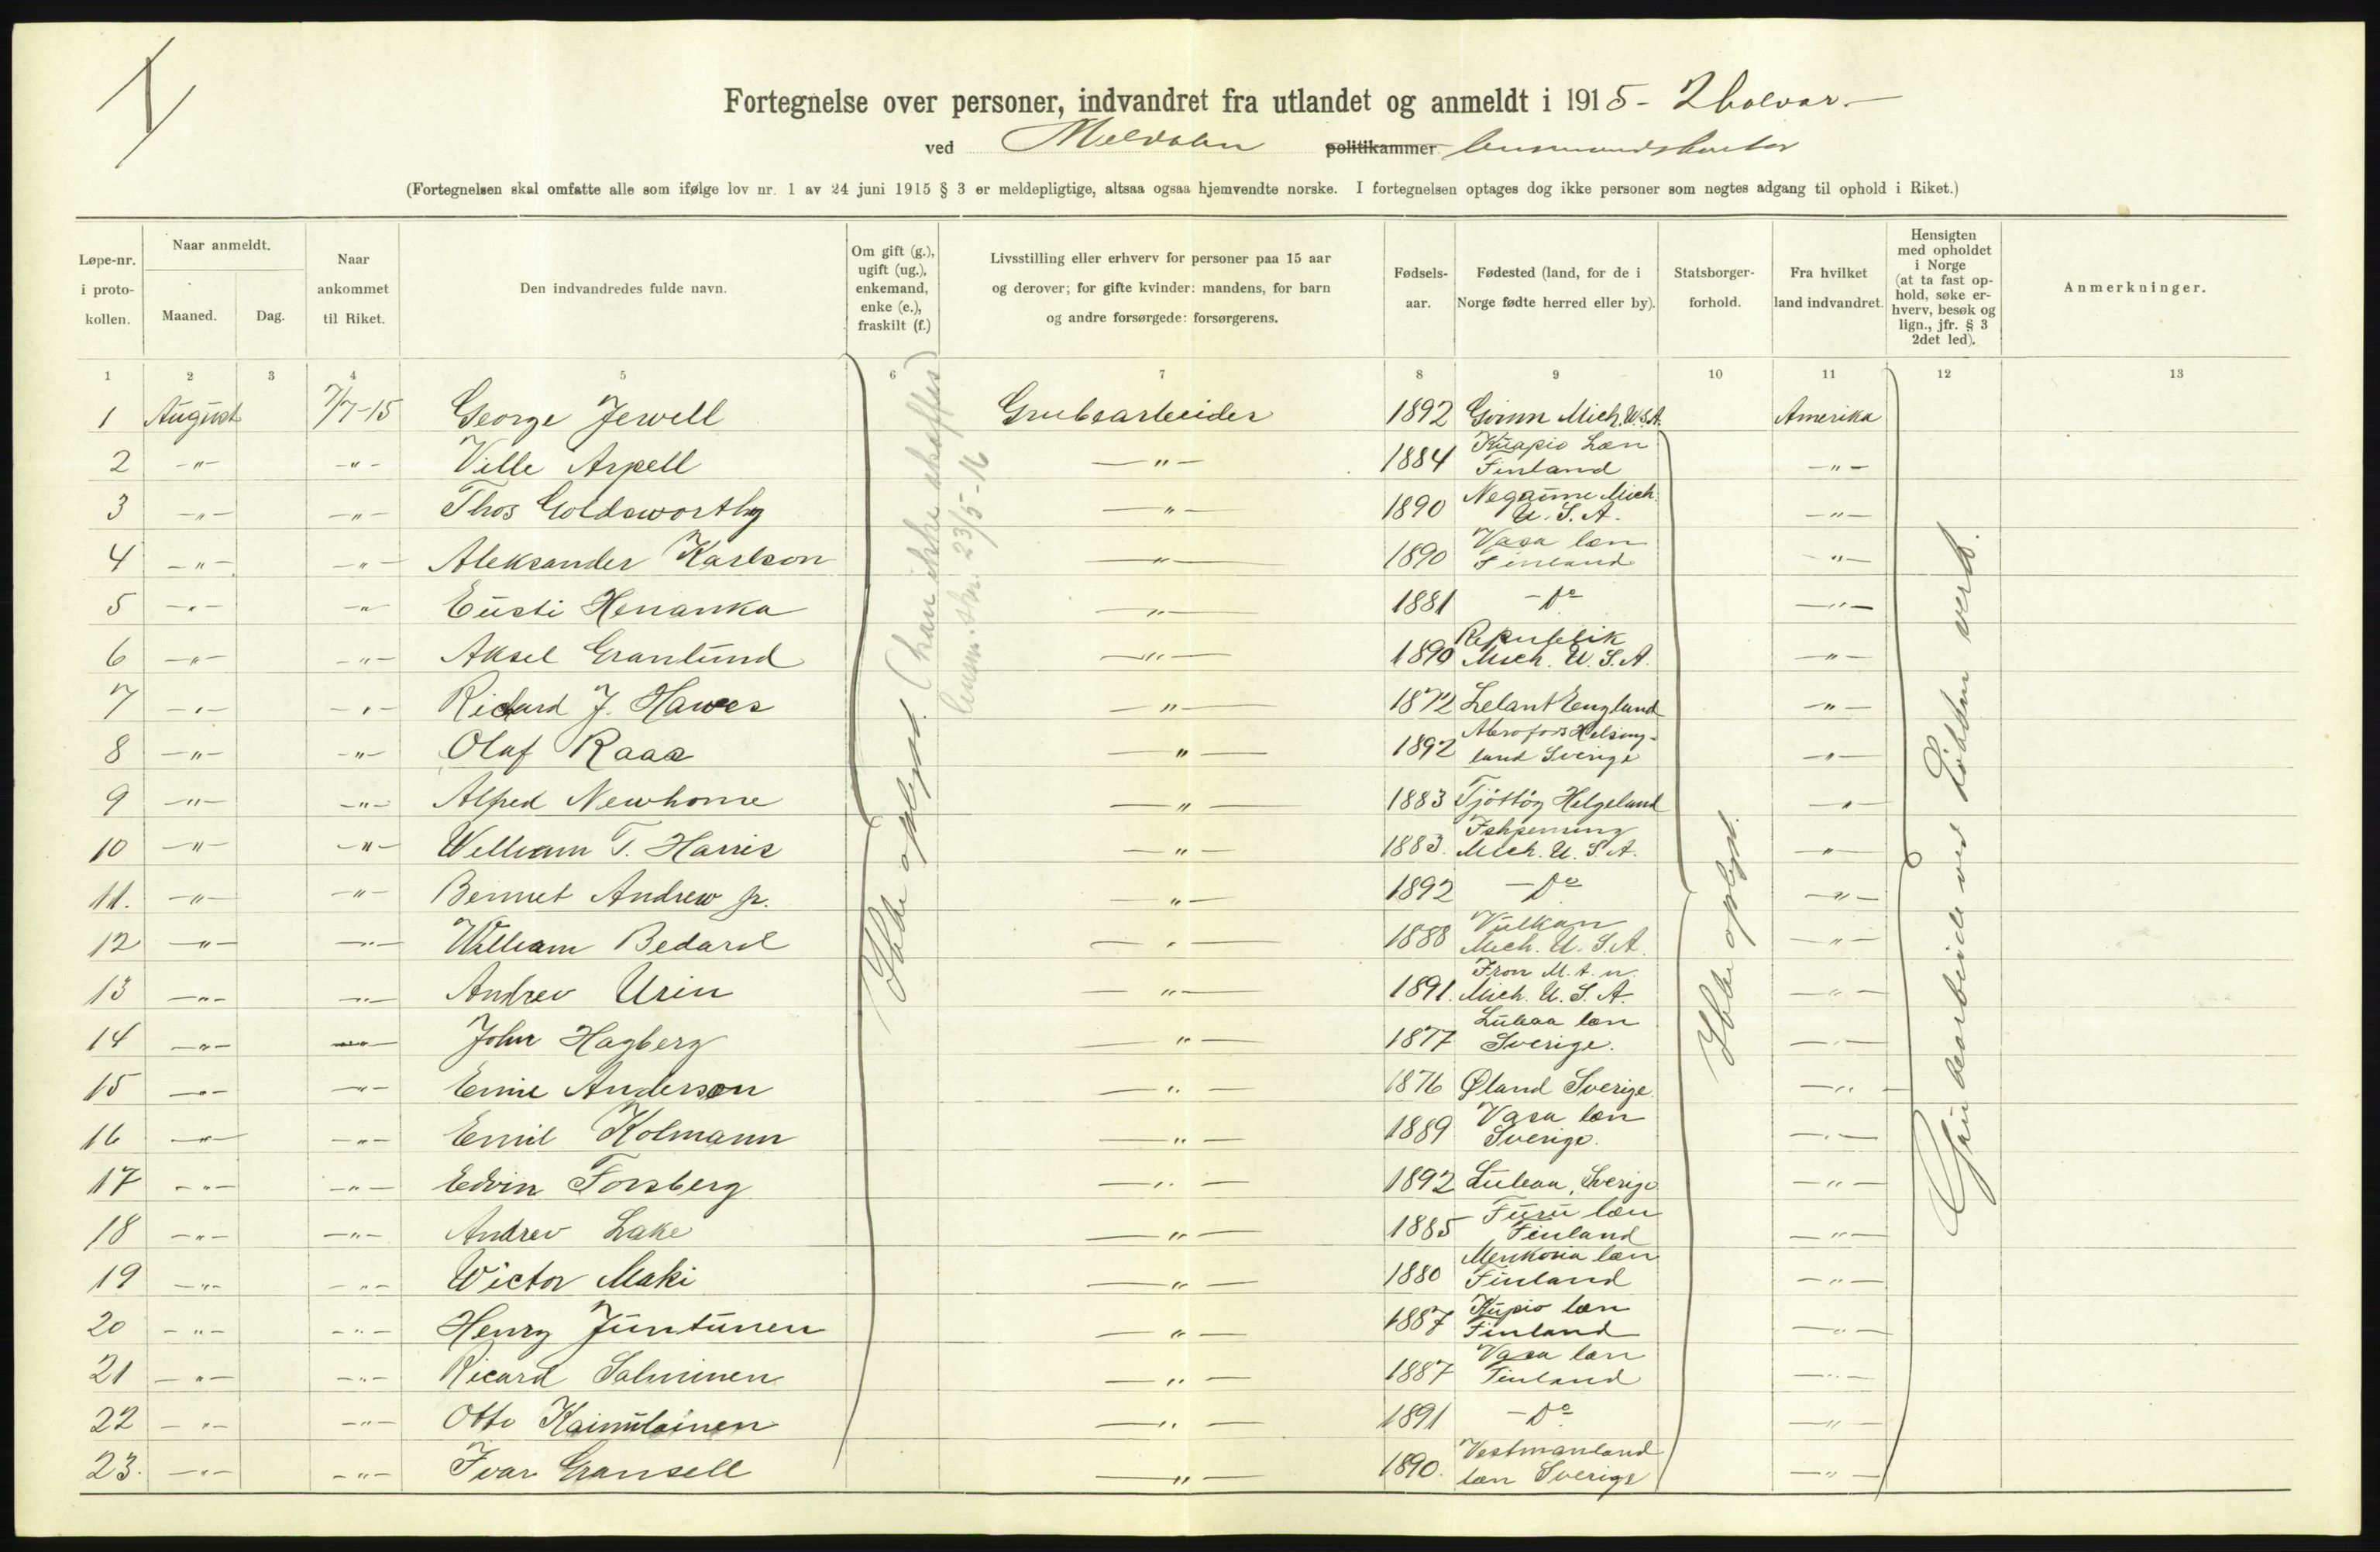 Fortegnelse over personer, indvandret fra utlandet og anmeldt i 1915 - 2 halvaar.
ved Meldalen politikammer lensmandskontor
(Fortegnelsen skal omfatte alle som ifølge lov nr. 1 av 24 juni 1915 § 3 er meldepligtige, altsaa ogsaa hjemvendte norske. I fortegnelsen optages dog ikke personer som negtes adgang til ophold i Riket.)
Løpe-nr. i proto-kollen.
Naar anmeldt.
Maaned.
Dag.
Naar ankommet til Riket.
Den indvandredes fulde navn.
Om gift (g.), ugift (ug.), enkemand, enke (e.), fraskilt (f.)
Livsstilling eller erhverv for personer paa 15 aar og derover; for gifte kvinder: mandens, for barn og andre forsørgede: forsørgerens.
Fødsels-aar.
Fødested (land, for de i Norge fødte herred eller by).
Statsborger-forhold.
Fra hvilket land indvandret.
Hensigten med opholdet i Norge (at ta fast op-hold, søke er-hverv, besøk og lign., jfr. § 3 2det led).
Anmerkninger.
1 2 3 4 5 6 7 8 9 10 11 12 13
1 August 7/7-15 George Jewell Grubearbeider 1892 Gvinn Mich. U.S.A. Amerika
2 -"- -"- Ville Aspell -"- 1884 Kuopio Læn Finland -"-
3 -"- -"- Thos Goldsworthy -"- 1890 Negaune Mich. U.S.A. -"-
4 -"- -"- Aleksander Karlson -"- 1890 Vasa læn Finland -"-
5 -"- -"- Eusti Henanka -"- 1881 - Do -"-
6 -"- -"- Aksel Granlund -"- 1890 Republik Mich. U.S.A. -"-
7 -"- -"- Richard J. Hawes -"- 1872 Lelant England -"-
8 -"- -"- Olaf Raas -"- 1892 Helsing-land Sverige -"-
9 -"- -"- Alfred Newhome -"- 1883 Tjøttøg Helgeland -"-
10 -"- -"- William T. Harris -"- 1883. Ishpeming Mich. U.S.A. -"-
11. -"- -"- Bennet Andrew jr. -"- 1892 - Do -"-
12 -"- -"- William Bedard -"- 1888 Vulkan Mich. U.S.A. -"-
13 -"- -"- Andrev Urin -"- 1891. Iron M.t.n. Mich. U.S.A. -"-
14 -"- -"- John Hagberg -"- 1877 Luleaa læn Sverige. -"-
15 -"- -"- Emil Anderson -"- 1876 Øland Sverige. -"-
16 -"- -"- Emil Kolmann -"- 1889 Vasa læn Sverige. -"-
17 -"- -"- Edvin Forsberg -"- 1892 Luleaa, Sverige -"-
18 -"- -"- Andrev Lake -"- 1885 Turu læn Finland -"-
19 -"- -"- Wictor Maki -"- 1880 læn Finland -"-
20 -"- -"- Henry Juntunen -"- 1887 Kupio læn Finland -"-
21 -"- -"- Ricard Salminen -"- 1887 Vasa læn Finland -"-
22 -"- -"- Otto Kainulainen -"- 1891 - Do -"-
23. -"- -"- Ivar Gransell -"- 1890. Vestmanland læn Sverige -"-
Ikke oplyst. (kan ikke skaffes)
23/5-16
Ikke oplyst.
Grubearbeide ved Løkken verk.